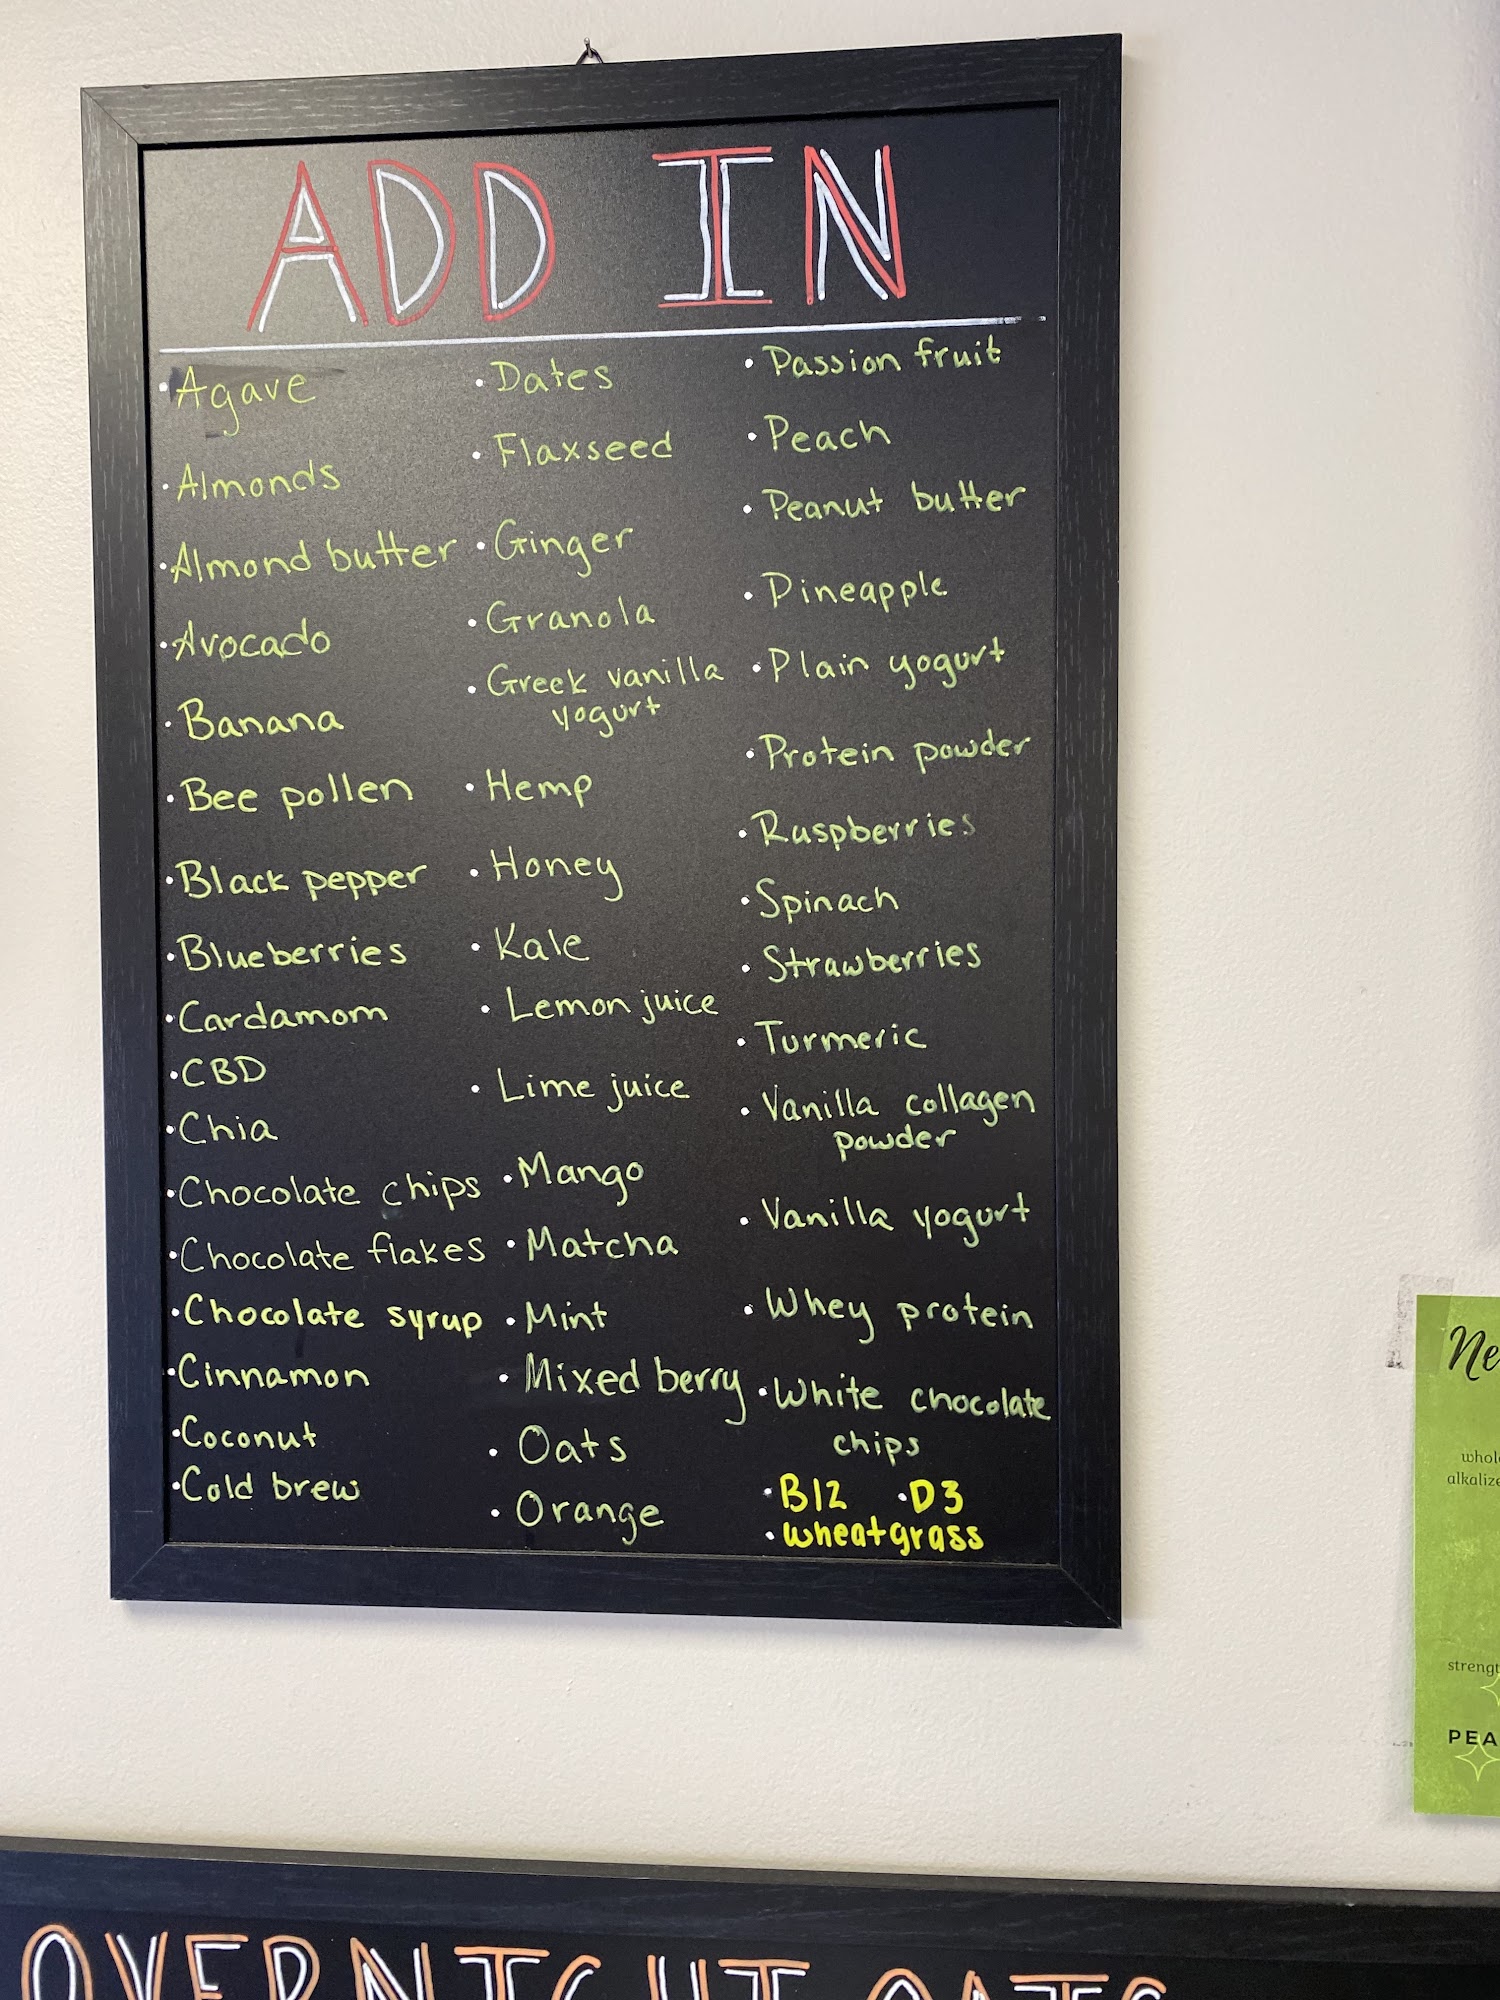 ADD IN
• Agave
• Almonds
• Almond butter
• Avocado
• Banana
• Bee pollen
• Black pepper
• Blueberries
• Cardamom
• CBD
• Chia
• Chocolate chips
• Chocolate flakes
• Chocolate syrup
• Cinnamon
• Coconut
• Cold brew
• Dates
• Flaxseed
• Ginger
• Granola
• Greek vanilla
yogurt
• Hemp
• Honey
• Kale
• Lemon juice
• Lime juice
• Mango
• Matcha
• Mint
• Mixed berry
• Oats
• Orange
• Passion fruit
• Peach
• Peanut butter
• Pineapple
• Plain yogurt
• Protein powder
• Raspberries
• Spinach
• Strawberries
• Turmeric
• Vanilla collagen
powder
• Vanilla yogurt
• Whey protein
• White chocolate
chips
• B12 • D3
• wheatgrass
Ne
whole
alkalize
strengt
PEA
OVERNIGHT OATS